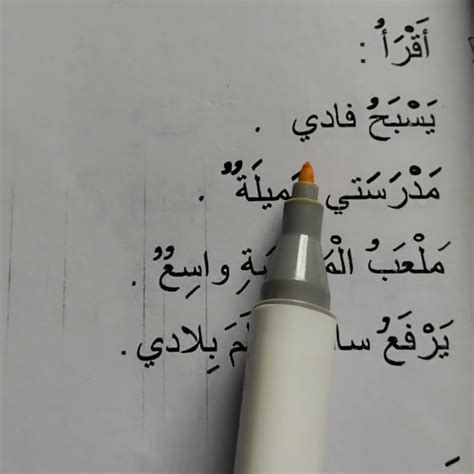 أَقْرَأُ :
يَسْبَحُ فادي .
مَدْرَسَتي جَميلَةٌ .
مَلْعَبُ الْمَدْرَسَةِ واسِعٌ .
يَرْفَعُ بِلادي .